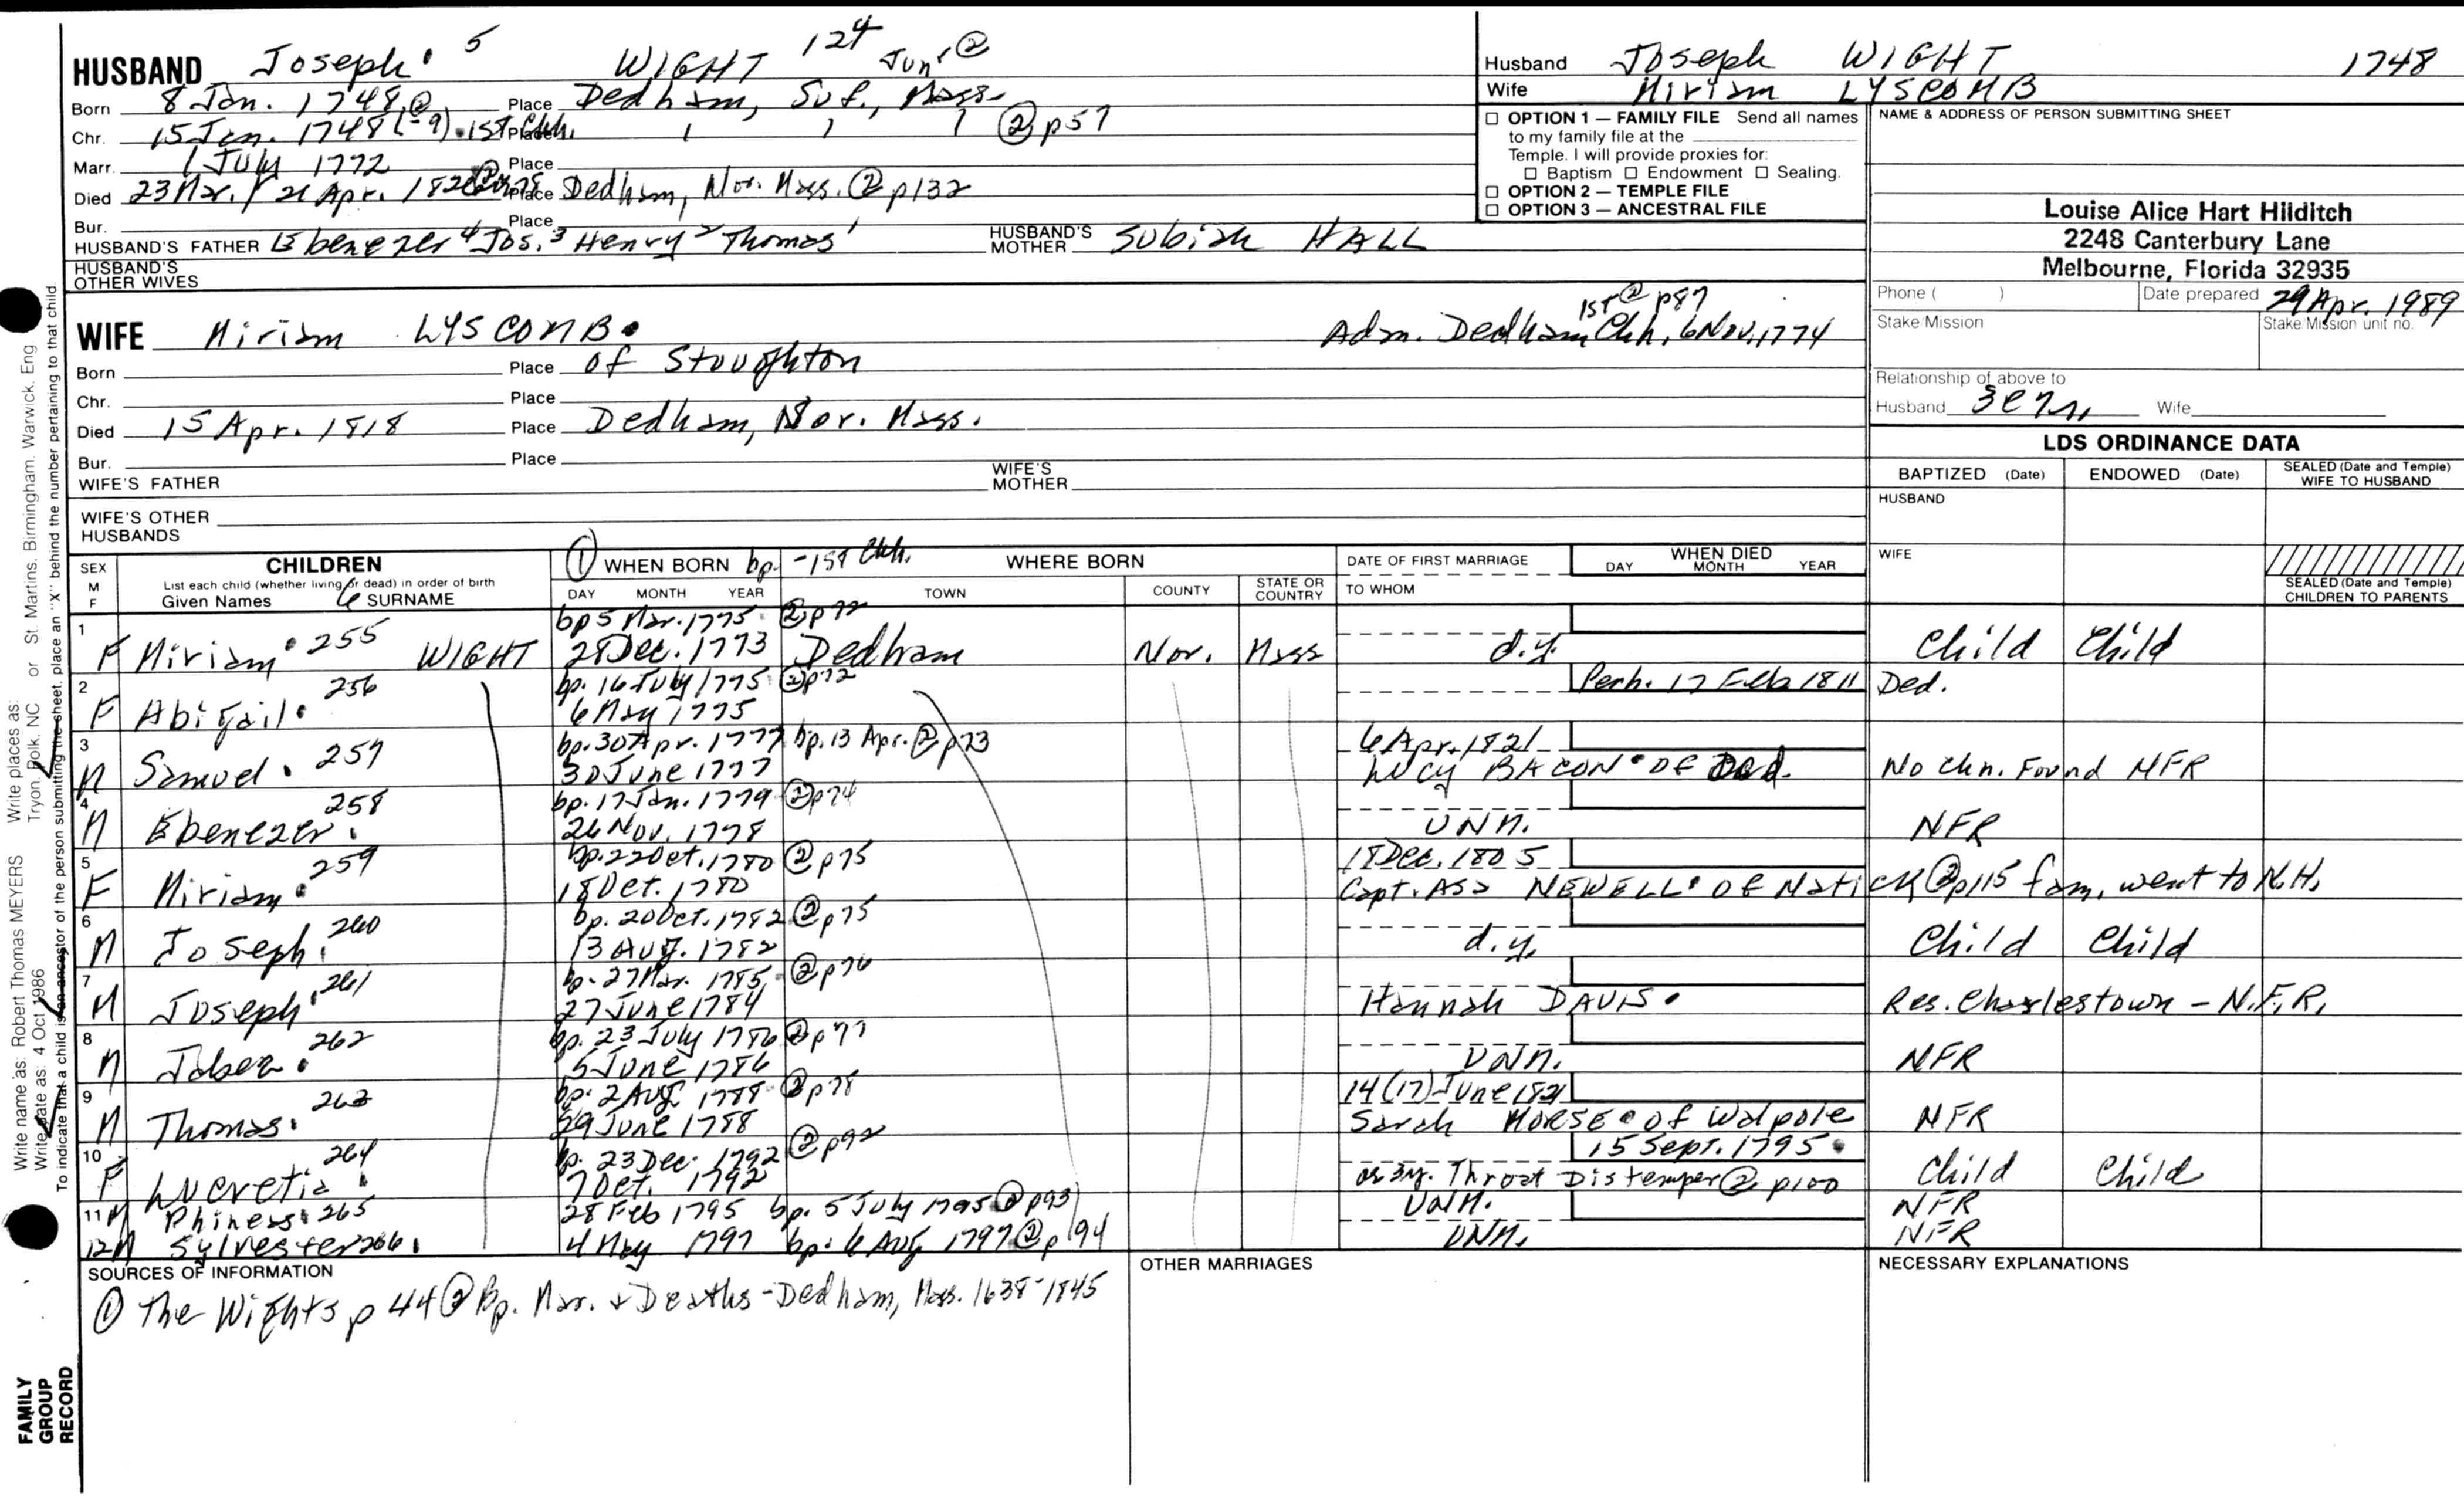 HUSBAND Joseph. 5 WIGHT 124 Jun. ②
Born 8 Jan. 1748 ② Place Dedham, Suf., Mass
Chr. 15 Jan. 1748(-9). 1st Chh. Place / / / ② p57
Marr. 1 July 1772 Place
Died 23 Mar. / 21 Apr. Place Dedham, Nor. Mass. ② p132
Bur. Place
HUSBAND'S FATHER Ebenezer 4 Jos. 3 Henry 2 Thomas 1 HUSBAND'S MOTHER Subiah HALL
HUSBAND'S OTHER WIVES
Husband Joseph WIGHT 1748
Wife Miriam LYSCOMB
☐ OPTION 1 — FAMILY FILE Send all names
to my family file at the
Temple. I will provide proxies for:
☐ Baptism ☐ Endowment ☐ Sealing.
☐ OPTION 2 — TEMPLE FILE
☐ OPTION 3 — ANCESTRAL FILE
NAME & ADDRESS OF PERSON SUBMITTING SHEET
Louise Alice Hart Hilditch
2248 Canterbury Lane
Melbourne, Florida 32935
Phone ( ) Date prepared 29 Apr. 1989
Stake/Mission Stake/Mission unit no.
Relationship of above to
Husband Wife
WIFE Miriam LYSCOMB. Adm. Dedham 1st Chh, 6 Nov, 1774 ② p87
Born Place of Stoughton
Chr. Place
Died 15 Apr. 1818 Place Dedham, Nor. Mass.
Bur. Place
WIFE'S FATHER WIFE'S MOTHER
WIFE'S OTHER HUSBANDS
LDS ORDINANCE DATA
BAPTIZED (Date) ENDOWED (Date) SEALED (Date and Temple) WIFE TO HUSBAND
HUSBAND
WIFE
SEALED (Date and Temple) CHILDREN TO PARENTS
SEX M F CHILDREN
List each child (whether living or dead) in order of birth
Given Names SURNAME
① WHEN BORN bp. -1st Chh. WHERE BORN
DAY MONTH YEAR TOWN COUNTY STATE OR COUNTRY
DATE OF FIRST MARRIAGE
TO WHOM
WHEN DIED
DAY MONTH YEAR
1 bp 5 Mar. 1775 ② p72
F Miriam. 255 WIGHT 28 Dec. 1773 Dedham Nor. Mass d.y. Child Child
2 bp. 16 July 1775 ② p72 Perh. 17 Feb 1811 Ded.
F Abigail. 256 6 May 1775
3 bp. 30 Apr. 1777 bp. 13 Apr. ② p73 6 Apr. 1821
M Samuel. 257 30 June 1777 Lucy BACON. OF Ded. No Chn. Found NFR
4 bp. 17 Jan. 1779 ② p74
M Ebenezer. 258 26 Nov. 1778 UNM. NFR
5 bp. 22 Oct. 1780 ② p75 18 Dec. 1805
F Miriam. 259 18 Oct. 1780 Capt. Asa NEWELL. OF Natick ② p115 fam. went to N.H.
6 bp. 20 Oct. 1782 ② p75
M Joseph. 260 13 Aug. 1782 d.y. Child Child
7 bp. 27 Mar. 1785 ② p76
M Joseph. 261 27 June 1784 Hannah DAVIS. Res. Charlestown - N.F.R.
8 bp. 23 July 1786 ② p77
M Jabez. 262 5 June 1786 UNM. NFR
9 bp. 2 Aug. 1788 ② p78 14(17) June 1821
M Thomas. 263 29 June 1788 Sarah MORSE. of Walpole NFR
10 bp. 23 Dec. 1792 ② p92 15 Sept. 1795.
F Lucretia. 264 7 Oct. 1792 ae 3y. Throat Distemper ② p100 Child Child
11 M Phineas. 265 28 Feb 1795 bp. 5 July 1795 ② p93 UNM. NFR
12 M Sylvester 266. 4 May 1797 bp. 6 Aug 1797 ② p94 UNM. NFR
SOURCES OF INFORMATION
① The Wights p 44 ② Bp. Mar. & Deaths - Dedham, Mass. 1638-1845
OTHER MARRIAGES
NECESSARY EXPLANATIONS
Write name as: Robert Thomas MEYERS Write places as: Tryon, Polk, NC or St. Martins, Birmingham, Warwick, Eng
Write date as: 4 Oct 1986
To indicate that a child is an ancestor of the person submitting the sheet, place an "X" behind the number pertaining to that child.
FAMILY
GROUP
RECORD